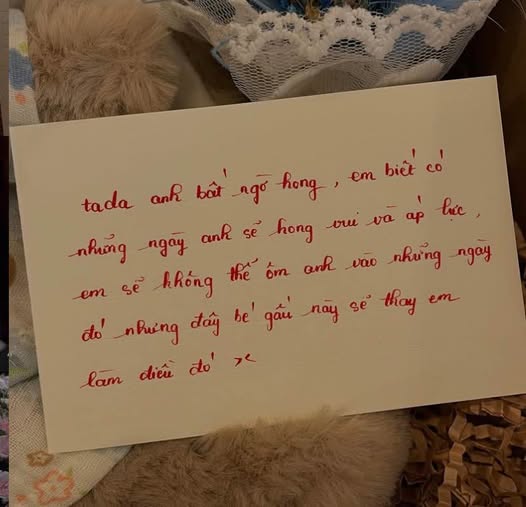 tada anh bất ngờ hong, em biết có
những ngày anh sẽ hong vui và áp lực,
em sẽ không thể ôm anh vào những ngày
đó nhưng đây bé gấu này sẽ thay em
làm điều đó ><